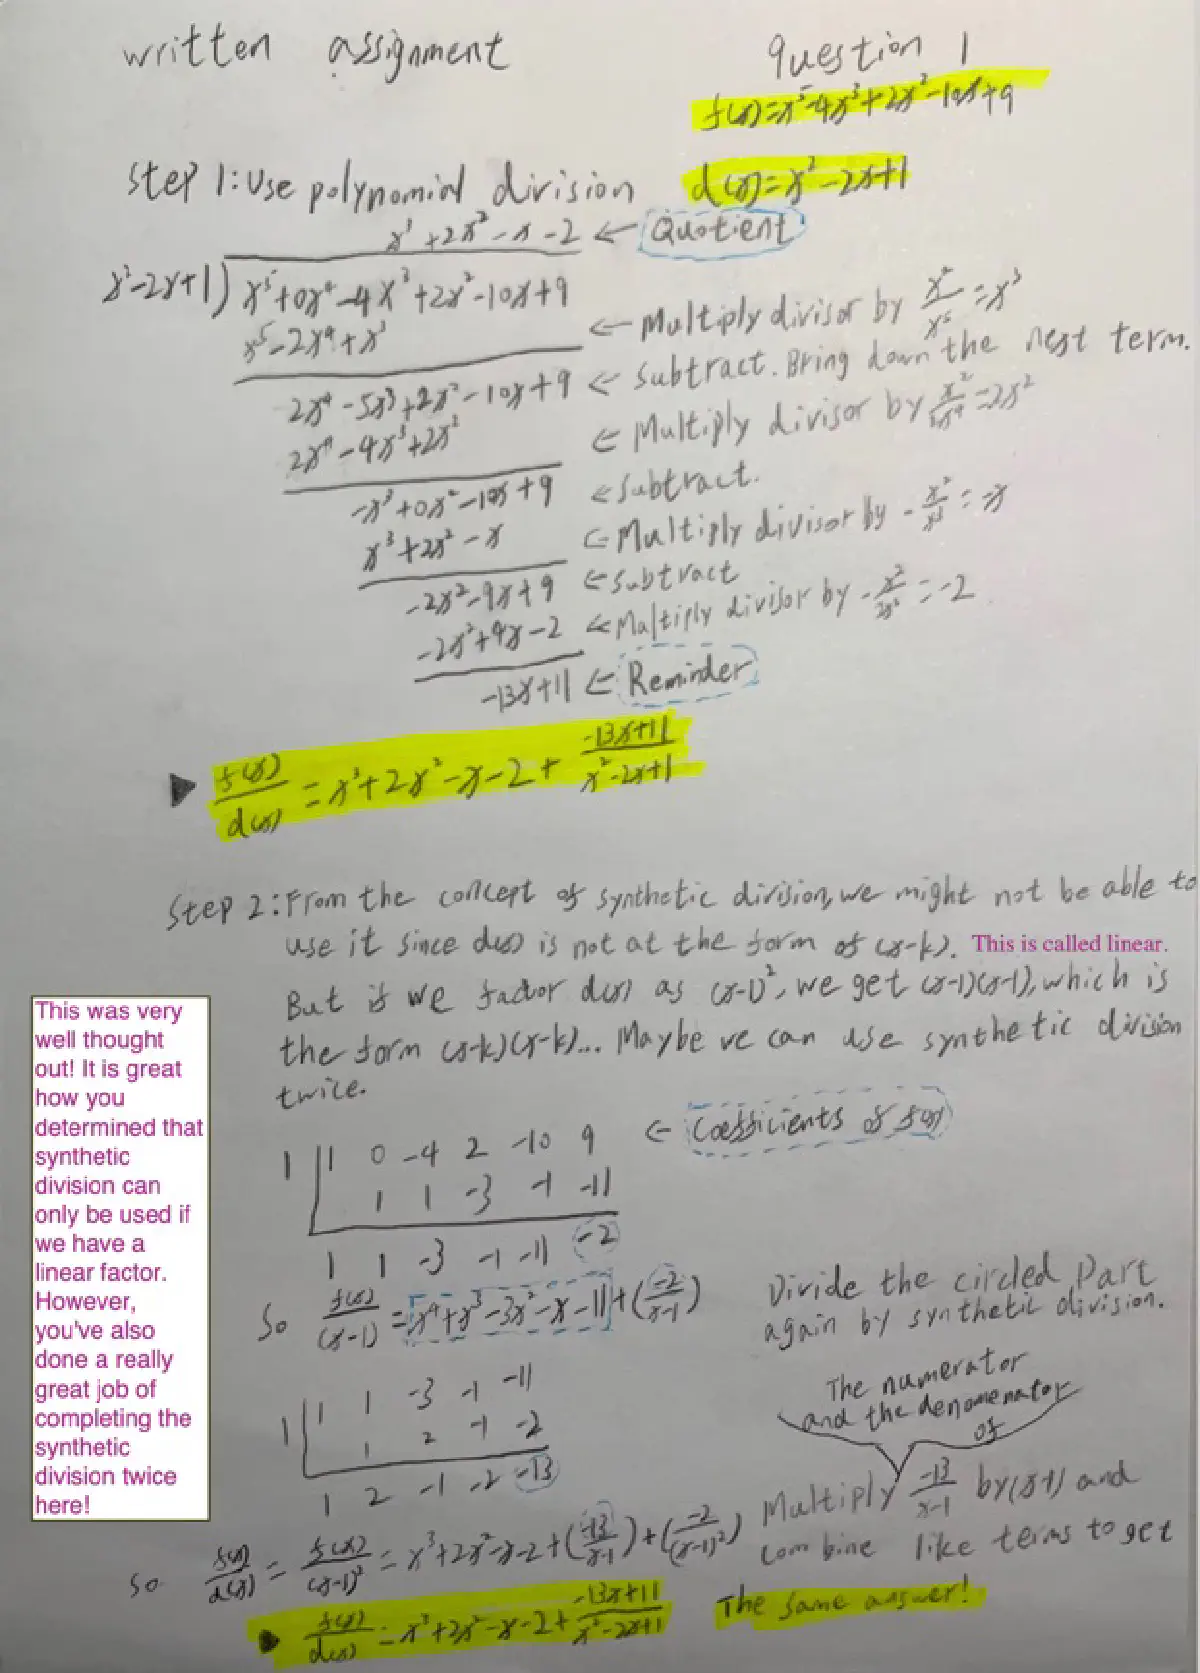 written assignment
question 1
f(x)=x⁵-4x³+2x²-10x+9
Step 1: Use polynomial division
d(x)=x²-2x+1
x³+2x²-x-2 ← Quotient
x²-2x+1)x⁵+0x⁴-4x³+2x²-10x+9
x⁵-2x⁴+x³ ← Multiply divisor by x²/x⁵=x³
2x⁴-5x³+2x²-10x+9 ← Subtract. Bring down the next term.
2x⁴-4x³+2x² ← Multiply divisor by x²/2x⁴=2x²
-x³+0x²-10x+9 ← Subtract.
x³+2x²-x ← Multiply divisor by -x²/x³=-x
-2x²-9x+9 ← Subtract
-2x²+4x-2 ← Multiply divisor by -x²/2x²=-2
-13x+11 ← Reminder
▶ f(x)/d(x)=x³+2x²-x-2+(-13x+11)/(x²-2x+1)
Step 2: From the concept of synthetic division, we might not be able to
use it since d(x) is not at the form of (x-k). This is called linear.
But if we factor d(x) as (x-1)², we get (x-1)(x-1), which is
the form (x-k)(x-k)... Maybe we can use synthetic division
twice.
This was very
well thought
out! It is great
how you
determined that
synthetic
division can
only be used if
we have a
linear factor.
However,
you've also
done a really
great job of
completing the
synthetic
division twice
here!
1 | 1 0 -4 2 -10 9 ← Coefficients of f(x)
1 1 -3 -1 -11
1 1 -3 -1 -11 -2
So f(x)/(x-1)=x⁴+x³-3x²-x-11+(-2/(x-1))
Divide the circled part
again by synthetic division.
1 | 1 1 -3 -1 -11
1 2 -1 -2
1 2 -1 -2 -13
The numerator
and the denomenator
of
Multiply -13/(x-1) by (x-1) and
combine like terms to get
The same answer!
So f(x)/d(x)=f(x)/(x-1)²=x³+2x²-x-2+(-13/(x-1))+(-2/(x-1)²)
▶ f(x)/d(x)=x³+2x²-x-2+(-13x+11)/(x²-2x+1)